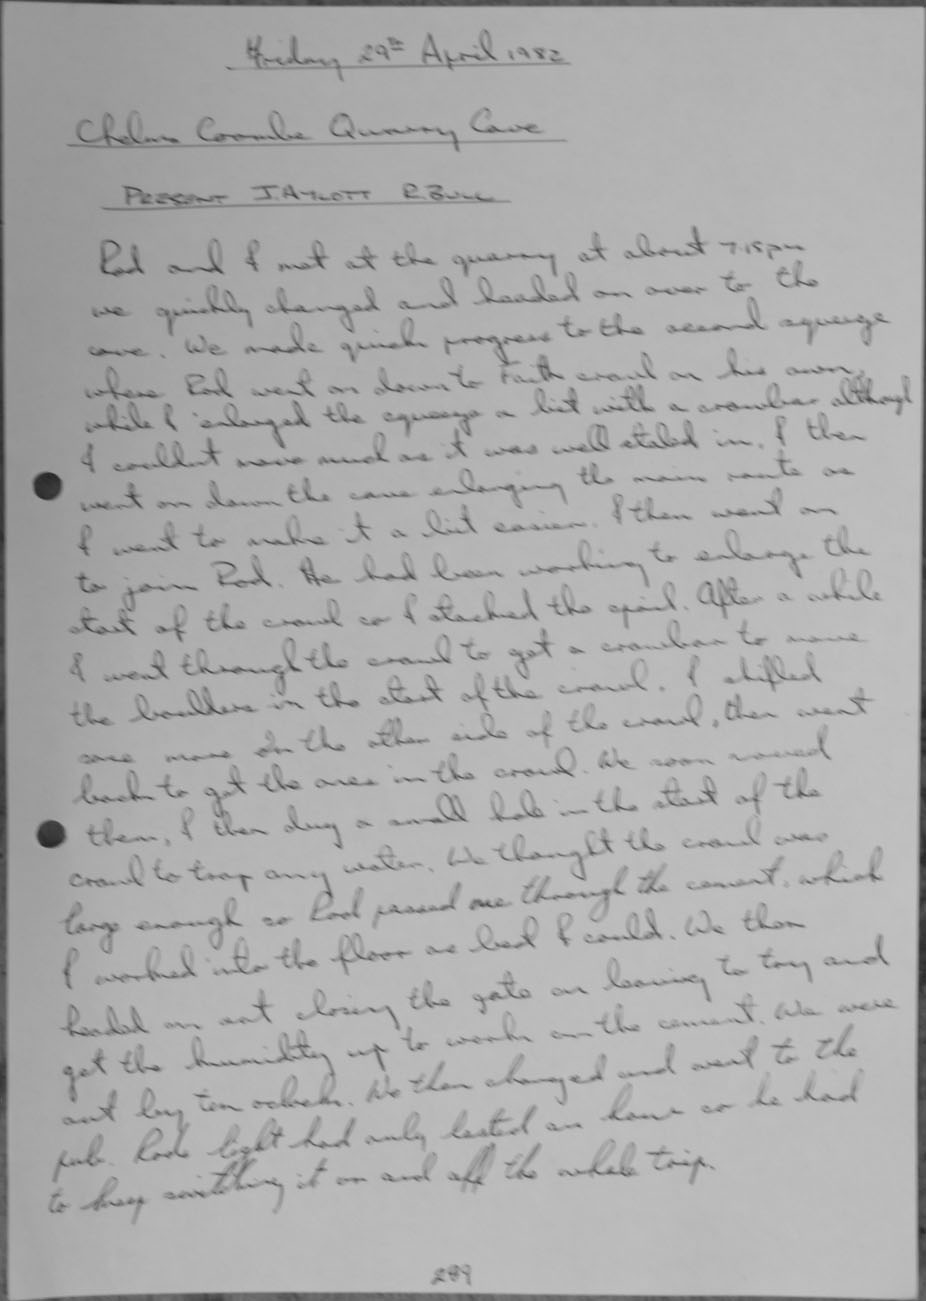 Friday 29th April 1982
Chelms Coombe Quarry Cave
PRESENT J.AYLOTT R.BULL
Rod and I met at the quarry at about 7.15pm
we quickly changed and headed on over to the
cave. We made quick progress to the second squeeze
where Rod went on down to Faith crawl on his own,
while I enlarged the squeeze a bit with a crowbar although
I couldnt move much as it was well staled in. I then
went on down the cave enlarging the main route as
I went to make it a bit easier. I then went on
to join Rod. He had been working to enlarge the
start of the crawl so I stacked the spoil. After a while
I went through the crawl to get a crowbar to move
the boulders in the start of the crawl. I shifted
some more on the other side of the crawl, then went
back to get the ones in the crawl. We soon moved
them, I then dug a small hole in the start of the
crawl to trap any water. We thought the crawl was
large enough so Rod passed me through the cement, which
I worked into the floor as best I could. We then
headed on out closing the gate on leaving to try and
get the humidity up to work on the cement. We were
out by ten oclock. We then changed and went to the
pub. Rods light had only lasted an hour so he had
to keep switching it on and off the whole trip.
289